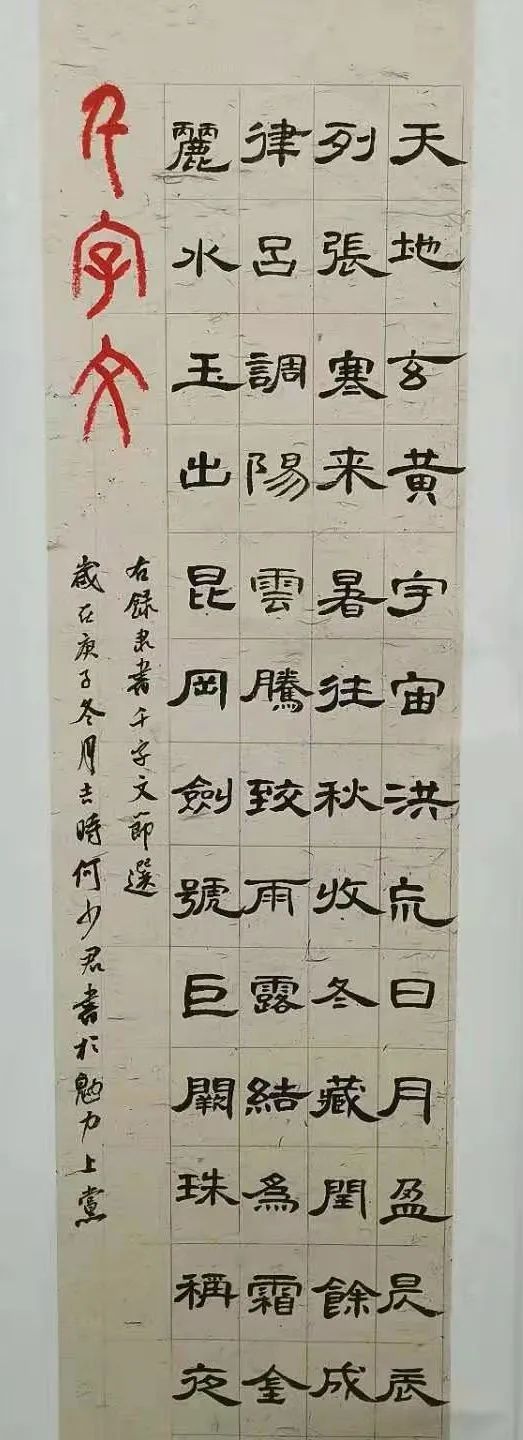 天地玄黄宇宙洪荒日月盈昃辰
列張寒来暑往秋收冬藏閏餘成
律吕調陽雲騰致雨露結爲霜金
麗水玉出昆岡劍號巨闕珠稱夜
千字文
右録隶書千字文節選
歲在庚子冬月吉時何少君書於勉力上黨